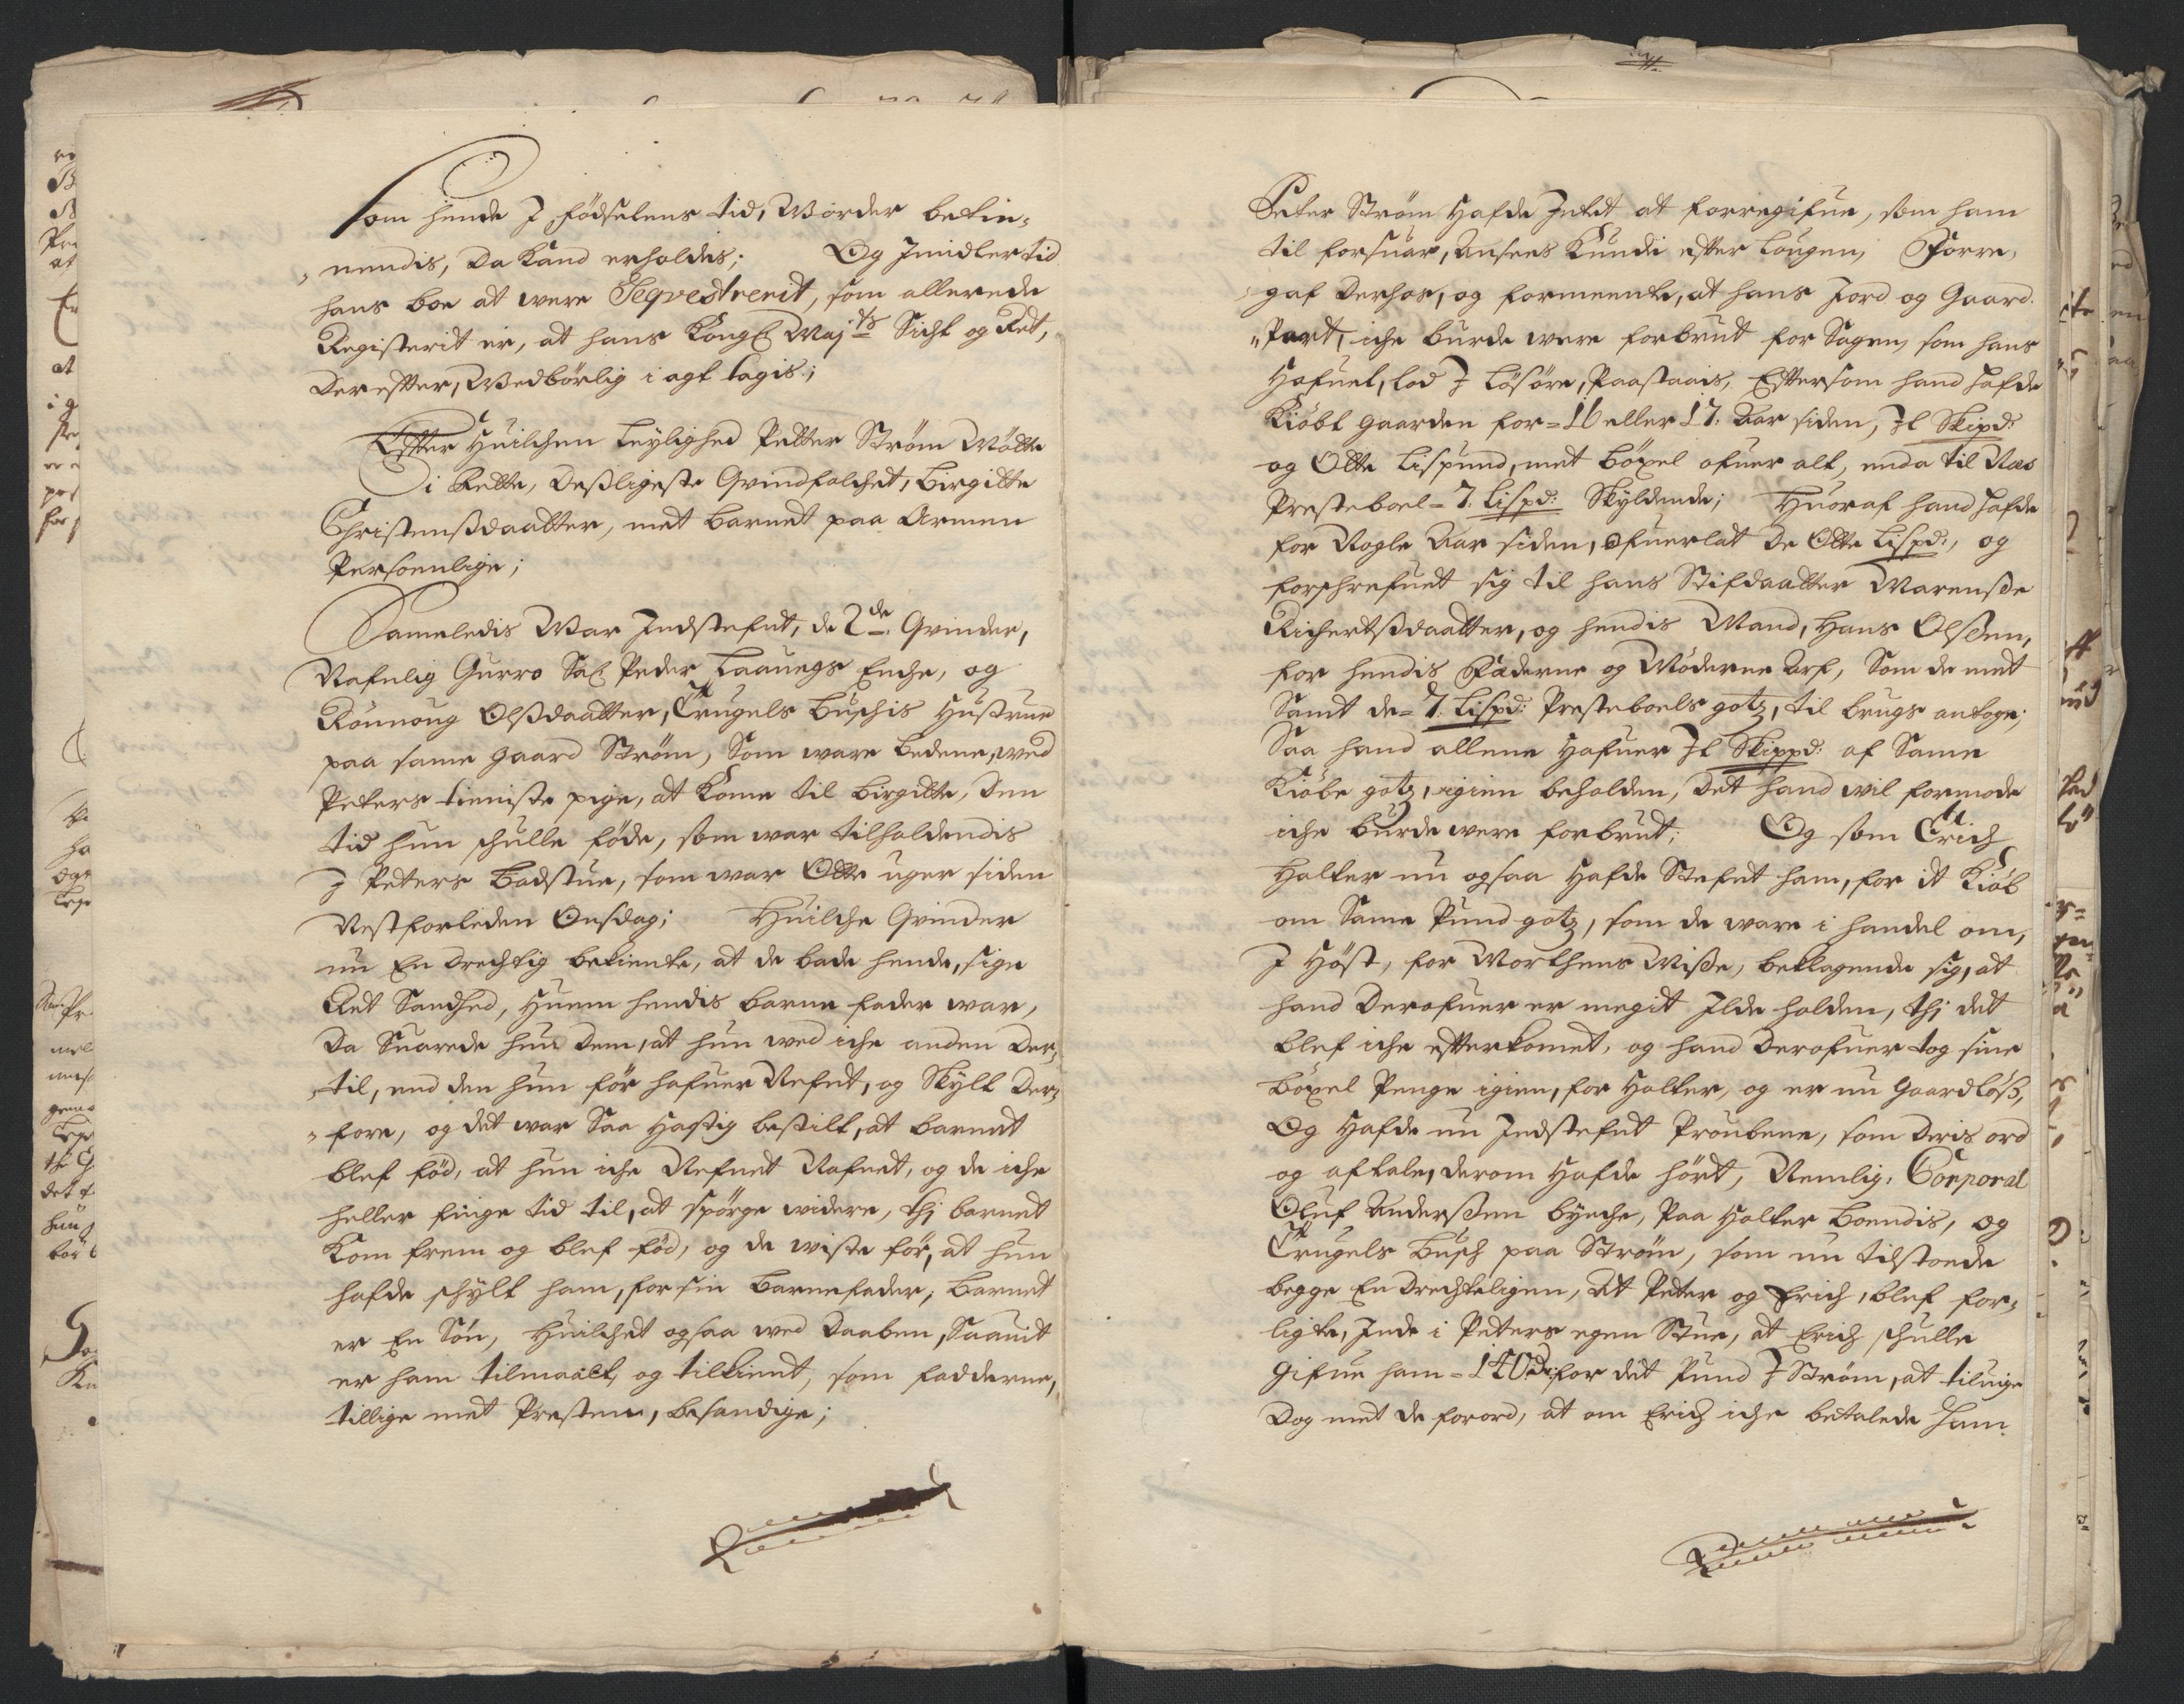 som hende J fødselens tid, Worder betien-
nendis, Da Kand erholdes; Og Jmidlertid
hans boe at were Seqvestrerit, som allerede
Registerit er, at hans Kongl Maj:ts Sicht og Ret,
Derefter, Wedbørlig i agt tagis;
Efter Huilchen Leylighed Petter Strøm Møtte
i Rette, Desligeste Qvindfolchet, Birgitte
Christensdaatter, met Barnet paa Armen
Personlige;
Sameledis War Jndstefnt, de 2de Qvinder,
Nafnlig Gurro Sal Peder Laauegs Enche, og
Rønnoug Olsdaatter, Truels Buschis Hustrue
paa same gaard Strøm, Som ware Bedene, wed
Peters tieniste pige, at Kome til Birgitte, Den
tid hun schulle føde, som war tilholdendis
J Peters Badstue, som war Otte uger siden
Nestforleden Onsdag; Huilche Qvinder
nu Endrechtig bekiente, at de bade hende, sige
Ret Sandhed, Huem hendis barne fader war,
Da Suarede hun Dem, at hun wed iche anden Der-
til, end den hun før hafuer Nefnt, og Skylt Der-
fore, og det war Saa Hastig bestilt, at barnet
blef fød, at hun iche Nefnet Nafnet, og de iche
heller finge tid til, at spørge widere, thj barnet
Kom frem og blef fød, og de wiste før, at hun
hafde schylt ham, for sin Barnefader, Barnet
er En Søn, Huilchet ogsaa wed Daaben, Saauit
er ham tilmaalt, og tilkient, som fadderne,
tillige met Presten, besandige;
Peter Strøm Hafde Jntet at forregifue, som ham
til forsuar, Ansees Kunde efter Lougen, Forre-
gaf Derhos, og formeente, at hans Jord og Gaard
Part, iche burde were forbrut for Sagen, som hans
Hafuet, lod J Løsøre, Paastaais, Eftersom hand hafde
Kiøbt gaarden for 16 eller 17. Aar siden, Jt Skipd:
og Otte Lispund, met bøxel ofuer alt, enda til Næs
Presteboel 7. Lispd: Skyldende; Huoraf hand hafde
for Nogle Aar siden, ofuerlat De Otte Lispd:, og
forschrefuet sig til hans Stifdaatter Marense
Richertsdaatter, og hendis Mand, Hans Olssen,
for hendis Fæderne og Møderne Arf, Som de met
Samt de 7. Lispd: Presteboels gotz, til brugs antoge;
Saa hand allene Hafuer Jt Skippd: af Same
Kiøbe gotz, igien beholden, Det hand wil formode
iche burde were forbrut; Og som Erich
Holter nu ogsaa Hafde Stefnt ham, for it Kiøb
om Same Pund gotz, som de ware i handel om,
J Høst, for Morthens Misse, beklagende sig, at
hand Derofuer er megit Jlde holden, thj det
blef iche efterkomet, og hand Derofuer tog sine
bøxel Penge igien, for Holter, og er nu gaardløss,
Og Hafde nu Jndstefnt Proubene, som Deris ord
og aftale, derom Hafde hørt, Nemlig, Corporal
Oluf Anderssen Bynche, Paa Holter Boendis, og
Truels Busch paa Strøm, som nu tilstoede
begge Endrechteligen, At Peter og Erich, blef for-
ligte, Jnde i Peters egen Stue, at Erich schulle
gifue ham 140 dr for dit Pund J Strøm, at tiluige
Dog met de forord, at om Erich iche betalede ham